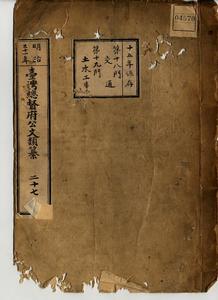 04570
十五年保存
第十八門
交通
第十九門
土木工事
明治
三十一年
臺灣總督府公文類纂
二十七